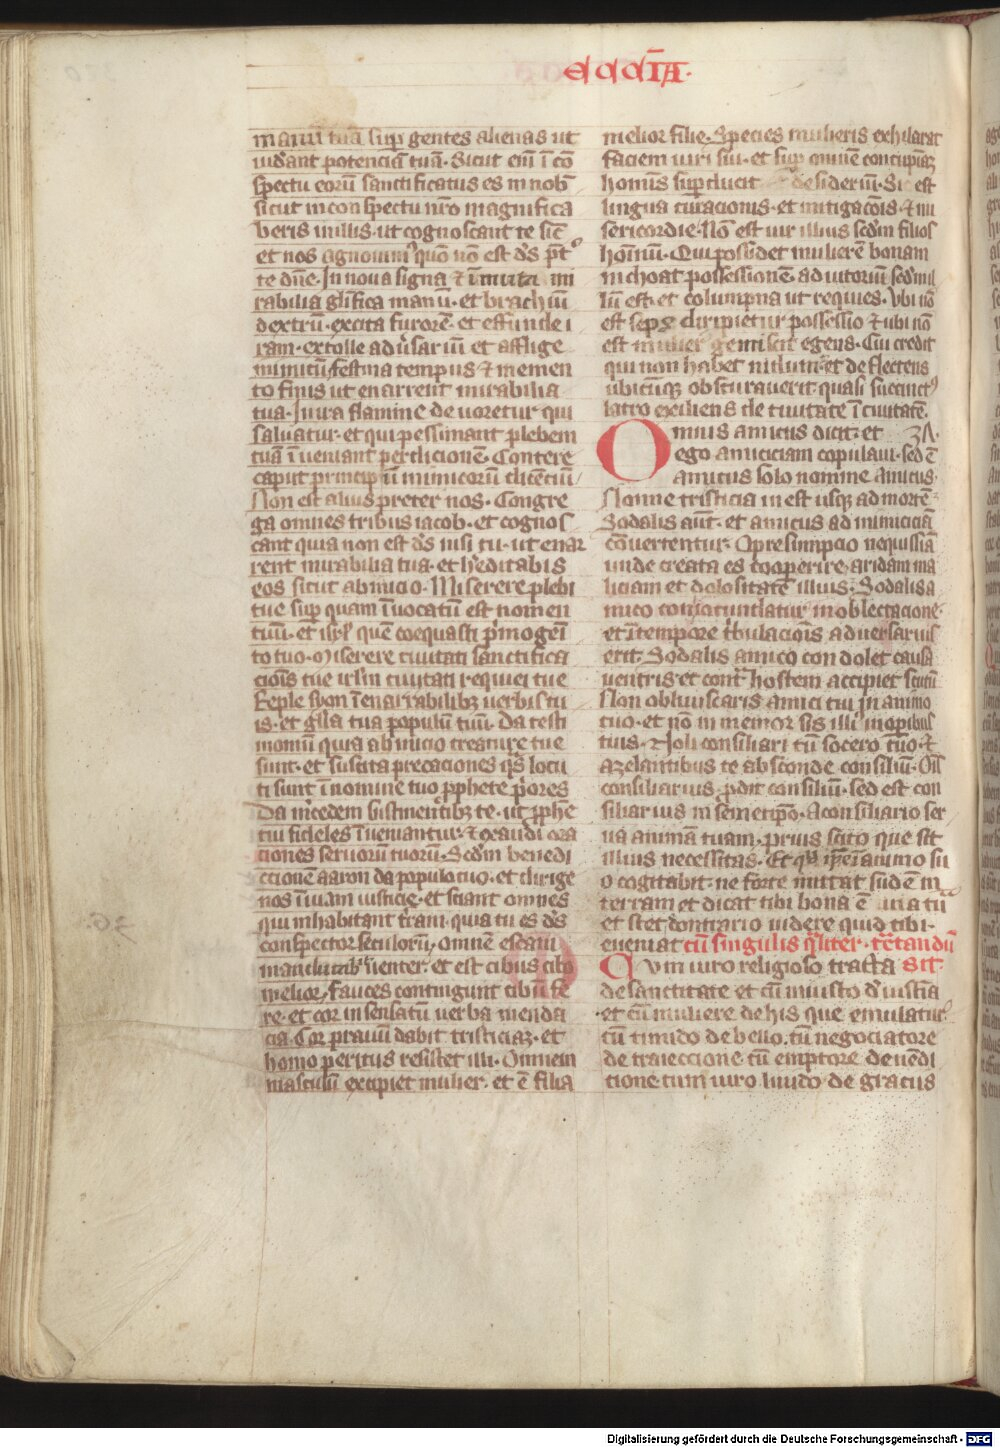 eccciA·
manū tuā sup gentes alienas ut
uidant potenciā tuā· Sicut em̄ ī cō
spectu eorū sanctificatus es in nob̄
sicut in conspectu nrō magnifica
beris in illis· ut cognoscant te sic̄
et nos agnouim quō nō est ds p̄t
te dn̄e· In noua signa ⁊ īmuta mi
rabilia· gl̄ifica manū· et brachiū
dextrū· excita furorē· et effunde i
ram· extolle aduersariū et afflige
inimicū festina tempus ⁊ memen
to finis ut enarrent mirabilia
tua· In ira flamme deuoretur qui
saluatur· et qui pessimant plebem
tuā īueniant perdicionē· Contere
caput principū inimicorū dicenciū·
Non est alius preter nos· Congre
ga omnes tribus iacob· et cognos
cant quia non est ds nisi tu· ut enar
rent mirabilia tua· et hereditabis
eos sicut ab inicio· Miserere plebi
tue sup quam īuocatū est nomen
tuū· et isrl quē coequasti p̄mogeī
to tuo· Miserere ciuitati sanctifica
ciōis tue irlm ciuitati requiei tue
Reple syon īenarrabilibꝫ uerbis tu
is· et gl̄a tua populū tuū· Da testi
moniū quia ab inicio creature tue
sunt· et suscita precaciones qs locu
ti sunt ī nomine tuo pphete p̄ores
Da mcedem sustinentibꝫ te· ut pphe
tui fideles īueniantur· ⁊ exaudi ora
ciones seruorū tuorū· Scdm benedi
ccionē aaron da populo tuo· et dirige
nos ī uiam iusticie· et sciant omnes
qui inhabitant tram· quia tu es ds
conspector seculorū· Omnē escam
manducabit uenter· et est cibus cibo
melior· Fauces contingunt cibū fe
re· et cor insensatū uerba menda
cia· Cor prauū dabit tristiciaꝫ· et
homo peritus resistet illi· Omnem
masculū excipiet mulier· et ē filia
melior filie· Species mulieris exhilarat
faciem uiri sui· et sup omnē concupiaꝫ
hominis supducit desiderium· Si est
lingua curacionis· et mitigacōis· ⁊ mi
sericordie· Nō est uir illius scdm filios
hoīnū· Qui possidet mulierē bonam
inchoat possessionē· adiutoriū scdm il
lū est· et columpna ut requies· Vbi nō
est sepes diripietur possessio ⁊ ubi nō
est mulier gemiscit egens· Cui credit
qui non habet nidum· et deflectens
ubicūqꝫ obscurauerit quasi succinct
latro exiliens de ciuitate ī ciuitatē·
Omnis amicus dicit· et 3A·
ego amiciciam copulaui· sed ē
amicus solo nomine amicus·
Nonne tristicia inest usqꝫ ad mortē·
Sodalis aut· et amicus ad inimiciciā
cōuertentur· O presumpcio nequissia
unde creata es cooperire aridam ma
liciam et dolositatē illius· Sodalis a
mico coniocundatur in oblectacione·
et ī tempore tbulaciois aduersarius
erit· Sodalis amico condolet causa
uentris et cont hostem accipiet scutū
Non obliuiscaris amici tui in animo
tuo· et nō inmemor sis illi in opibus
tuis· Noli consiliari cū socero tuo· ⁊
azelantibus te absconde consiliū· Oīs
consiliarius· pdit consiliū· sed est con
siliarius in semetipo· A consiliario ser
ua animā tuam· prius scito que sit
illius necessitas· Et q ipe ī animo su
o cogitabit· ne forte mittat sudē in
terram et dicat tibi bona ē uia tū
et stet contrario uidere quid tibi·
eueniat cū singulis qliter· trctandū
Cum uiro religioso tracta sit·
de sanctitate et cū iniusto d iusticia
et cū muliere de his que emulatur·
cū timido de bello· cū negociatore
de traieccione cū emptore de uēdi
cione cum uiro liuido de gracis
36·